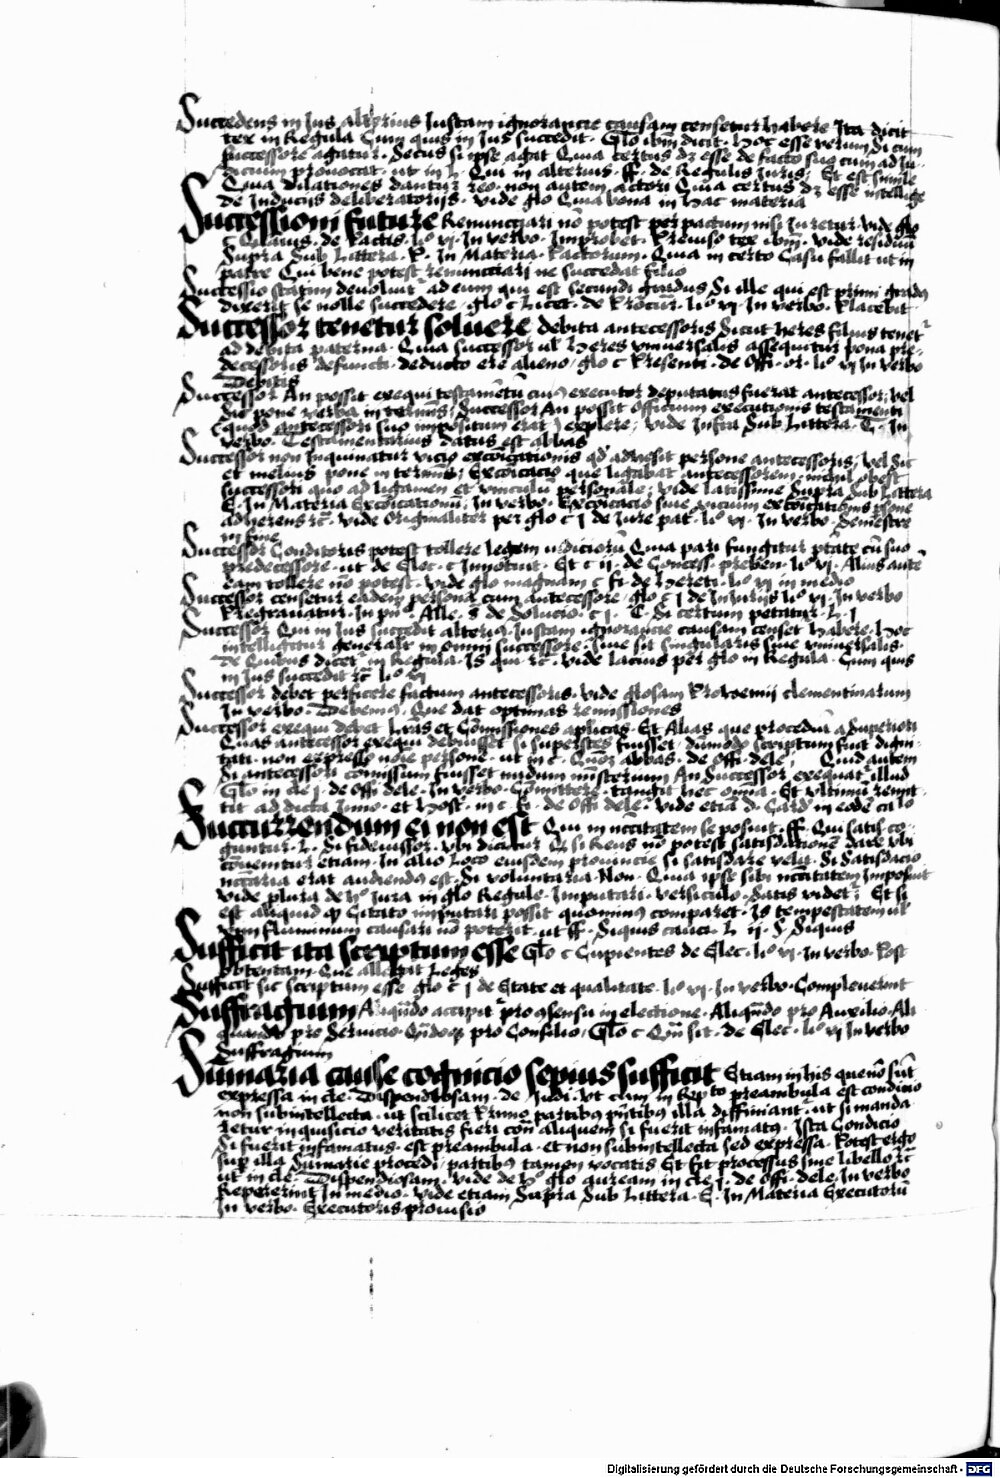 Succedens in Ius alterius Iustam ignorancie causam censetur habere Ita dicit
tex in Regula Cum quis in Ius succedit · Glo ibm̄ dicit · Hoc esse verum Si cum
successore agatur · Secus si ipse agat Quia certus dz esse de facto suo cum ad Iu
dicium prouocat · ut in L · Qui in alterius · ff · de Regulis Iuris; Et est simile
Quia dilationes dantur reo · non autem actori Quia certus dz esse intellige
de Inducijs deliberatorijs · vide glo Quia bona in hac materia
Successioni future Renunctiari nō potest per pactum nisi Iuretur · vide glo
c Quamuis · de Pactis · li° vi · In verbo · Improbet · Preuiso tex ibm̄ · vide residuū
Supra Sub Littera · P · In Materia · Pactorum · Quia in certo Casu fallit ut in
patre Qui bene potest renunctiari ne succedat filio
Successio statim deuoluit ad eum qui est secundi gradus Si ille qui est primi gradꝯ
dixerit se nolle succedere / glo c Licet · de Procur̄ · li° vi · In verbo · Placebit
Successor tenetur soluere debita antecessoris Sicut heres filius tenet̄
ad debita paterna · Quia successor ul̄ heres vniuersalis assequitur bona pre-
decessoris defuncti · deducto ere alieno / glo c Presenti · de offi · or · li° vi In verbo
Debitis
Successor An possit exequi testamētū cuiꝯ executor deputatus fuerat antecessor; vel
dic pone verba in terminis; Successor An possit officium executionis testamenti
(quod antecessori suo impositum erat) explere; vide Infra Sub Littera · T · In
verbo · Testamentarius datus est abbas
Successor non Inquinatur vicio excōicationis qd̄ adhesit persone antecessoris; vel Sit
et melius pone in termis; Excōicacio que ligabat antecessorem · nichil obest
successori quo ad ligamen et vinculū personale; vide latissime Supra Sub Littera
E · In Materia Excōicationū; In verbo · Excōicacio siue vicium excōicationis p̄sone
adherens rc̄ · vide Originaliter per glo c j de Iure pat · li° vi · In verbo · Semestre
in fine
Successor Conditoris potest tollere legem iudiciorū Quia pari fungitur ptāte cū suo
predecessore · ut de Elec · c Innotuit · Et c ij · de Concess · preben · li° vi · Alius autē
eam tollere nō potest · vide glo magnam c fi · de hereti · li° vi in medio
Successor censetur eadem persona cum antecessore / glo c j de Iniurijs li° vi · In verbo
Pregrauatur · In pn° · Alle · § de Solucio · c j · C · Si certum petatur · L · j
Successor Qui in Ius succedit alteriꝯ Iustam ignorancie causam censet̄ habere · Hoc
intelligitur generalit̄ in omni successore · siue sit singularis siue vniuersalis ·
De Quibus dicet̄ in Regula · Is qui rc̄ · vide lacius per glo in Regula · Cum quis
in Ius succedit rc̄ li° vi
Successor debet perficere factum antecessoris · vide glosam Prohemij clementinarum
In verbo · Debemꝯ · Que dat optimas remissiones
Successor exequi debet Lr̄as et Cōmissiones aplicas · Et Alias que procedūt a superiori
Quas antecessor exequi debuisset si superstes fuisset / dūmodo scriptum fuit digni-
tati · non expresso noīe persone · ut in c · Quoꝯ abbas · de offi · dele; Quid autem
Si antecessori comissum fuisset nudum mīsterium An Successor exequat̄ illud
Glo in cle j · de offi dele · In verbo · Cōmittere · tangit hec om̄ia · Et vltimū remit-
tit ad dicta Inno · et Host̄ · in c · fi · de offi dele · vide etiā d · Card in eodē ca lo
Succurrendum ei non est Qui in nc̄citatem se posuit · ff · Qui satis co-
guntur · L · Si fideiussor · vbi dicitur Qd̄ si Reus nō potest satisdacionē dare vbi
cōuenitur etiam · In alio Loco eiusdem prouincie si satisdare velit · Si satisdacio
nc̄caria erat audiendꝯ est · Si voluntaria · Non · Quia ipse sibi nc̄citatem Imposuit
vide plura de h° Iura in glo Regule · Imputari · versiculo · Satis videt̄; Et si
est aliquid ꝙ Citato imputari possit quominꝯ compareret · Is tempestatem ul̄
vim fluminum causari nō poterit · ut ff · Siquis cauci · L · ij · § · Siquis
Sufficit ita scriptum esse Glo c Cupientes de Elec · li° vi · In verbo · Post
potentam · Que allegat Leges
Sufficit sic scriptum esse · glo c j de Etate et qualitate · li° vi · In verbo · Compleuerint
Suffragium Aliquādo accipit̄ pro ꝯsensu in electione · Aliquādo pro Auxilio · Ali
quando pro Seruicio · Qn̄doqꝫ pro Consilio / Glo c Qm̄ sit · de Elec · li° vi In verbo
Suffragium
Sumaria cause cognicio sepius sufficit Etiam in his que nō sūt
expressa in cle · Dispendiosam · de Iudi · vt cum in Rep to preambula est condicio
non subintellecta · ut scilicet Primo partibus pn̄tibus illa diffiniant̄ · ut si manda
retur inquisicio veritatis fieri con̄ aliquem si fuerit infamatꝯ · Ista Condicio
Si fuerit infamatus · est preambula · et non subintellecta sed expressa · Potest ergo
sup̄ illa Sumarie procedi / partibꝯ tamen vocatis Et fit processus sine libello rc̄
ut in cle · Dispendiosam · vide de h° glo quream in cle j · de offi · dele · In verbo
Repererint In medio · vide etiam Supra Sub Littera · E · In Materia Executorū
In verbo · Executoris prouisio
Digitalisierung gefördert durch die Deutsche Forschungsgemeinschaft - DFG